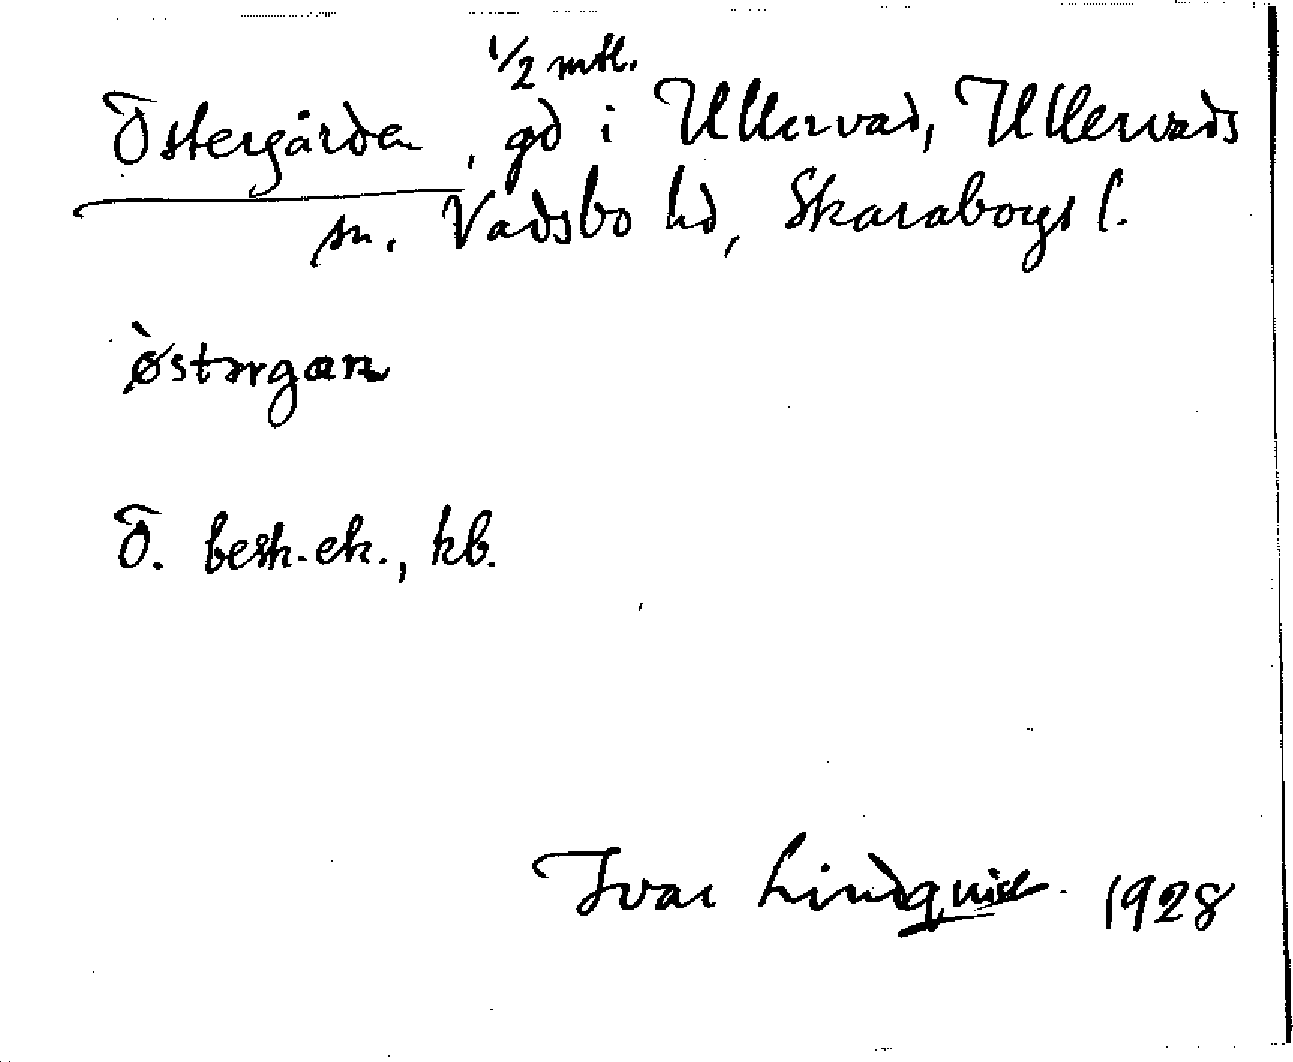 1/2 mtl.
Östergården, gd i Ullervad, Ullervads
sn. Vadsbo hd, Skaraborgs l.
è̀østərgan
Ö. besk. ek., kb.
Ivar Lindquist 1928